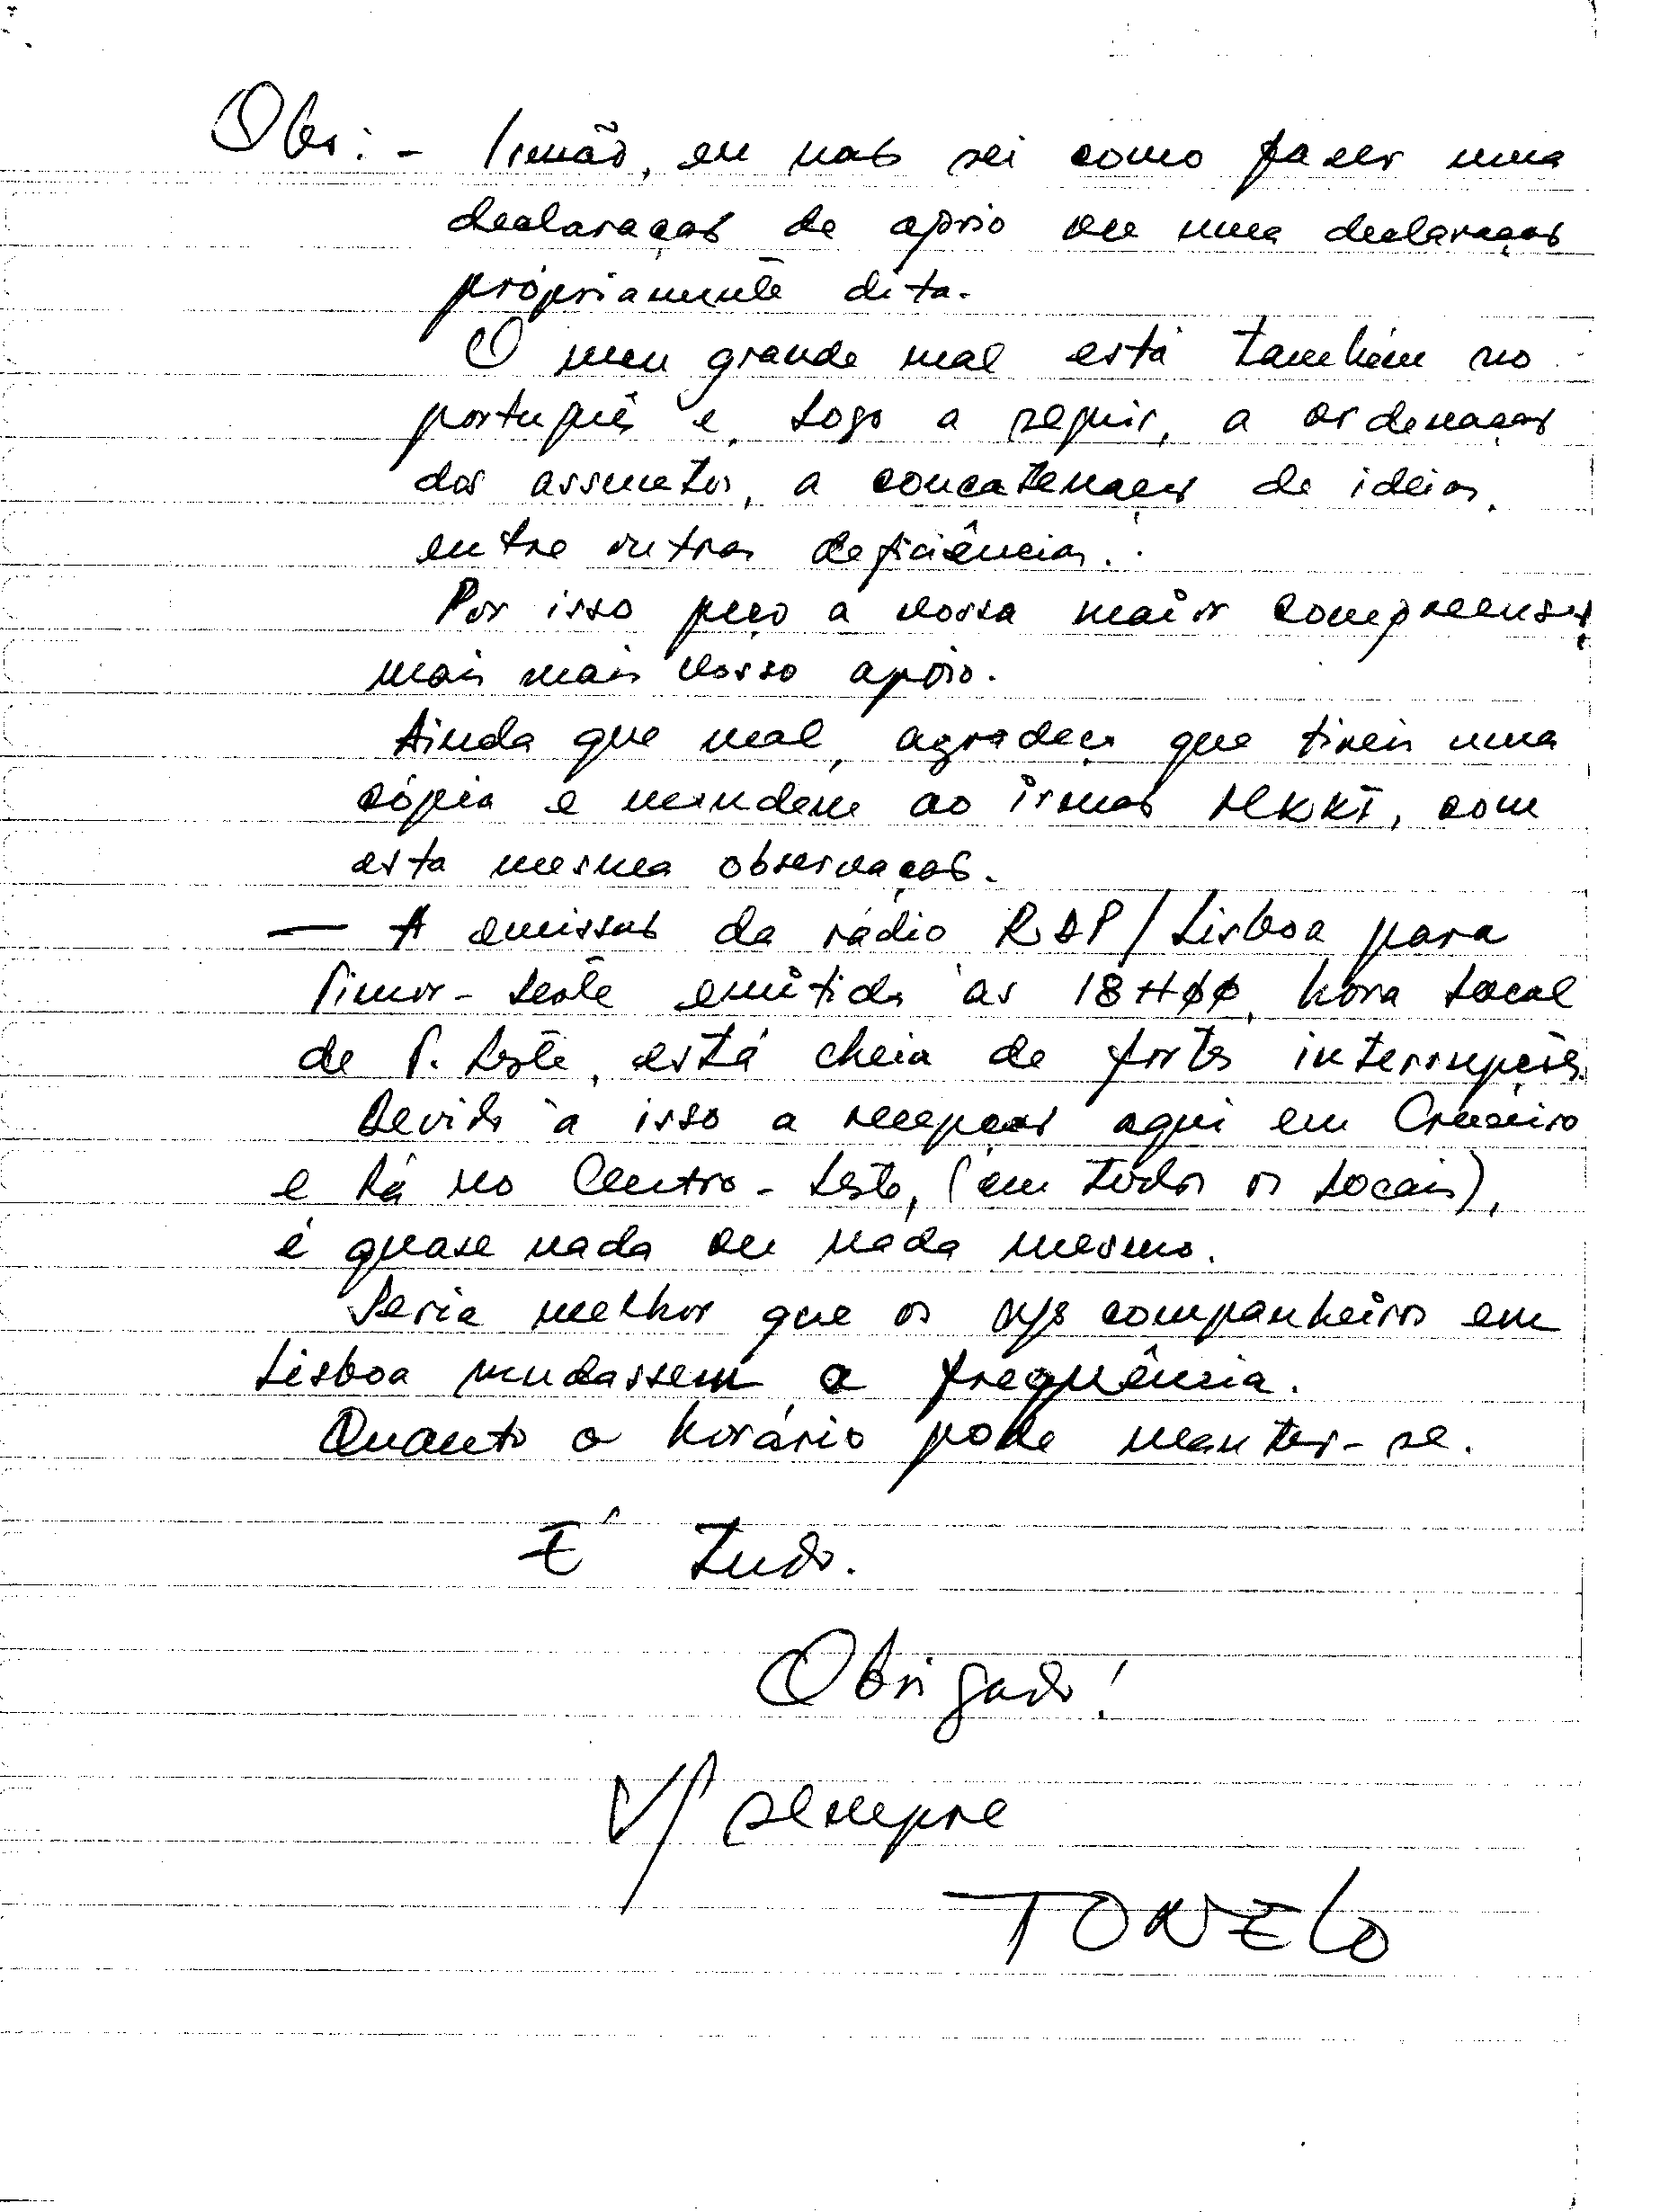 Obs: - Irmão, eu não sei como fazer uma
declaração de apoio ou uma declaração
própriamente dita.
O meu grande mal está também no
português e, logo a seguir, a ordenação
dos assuntos, a concatenação de ideias,
entre outras deficiências.
Por isso peço a vossa maior compreensão,
mais mais vosso apoio.
Ainda que mal, agradeço que tirem uma
cópia e mandem ao irmão MKKI, com
esta mesma observação.
— A emissão da rádio RDP/Lisboa para
Timor-Leste emitida às 18H00, hora local
de T. Leste, está cheia de fortes interrupções.
Devido à isso a recepção aqui em Cruzeiro
e lá no Centro-Leste, (em todos os locais),
é quase nada ou nada mesmo.
Seria melhor que os n/s companheiros em
Lisboa mudassem a frequência.
Quanto o horário pode manter-se.
É tudo.
Obrigado!
V/ sempre
TONELO